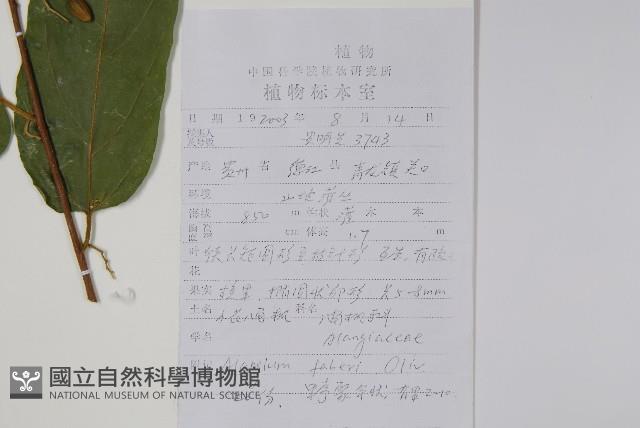 植物
中国科学院植物研究所
植物标本室
日 期 19 2003 年 8 月 14 日
采集人及号数 3743
产地 贵州 省 德江 县 青龙镇 关口
环境 山地灌丛
海拔 850 m 性状 灌木
胸高直径 cm 体高 1.7 m
叶
花
果实 核果, 椭圆状卵形 长5-8mm
土名 小花八角枫 科名 八角枫科
学名 Alangiaceae
附记 Alangium faberi Oliv.
國立自然科學博物館
NATIONAL MUSEUM OF NATURAL SCIENCE